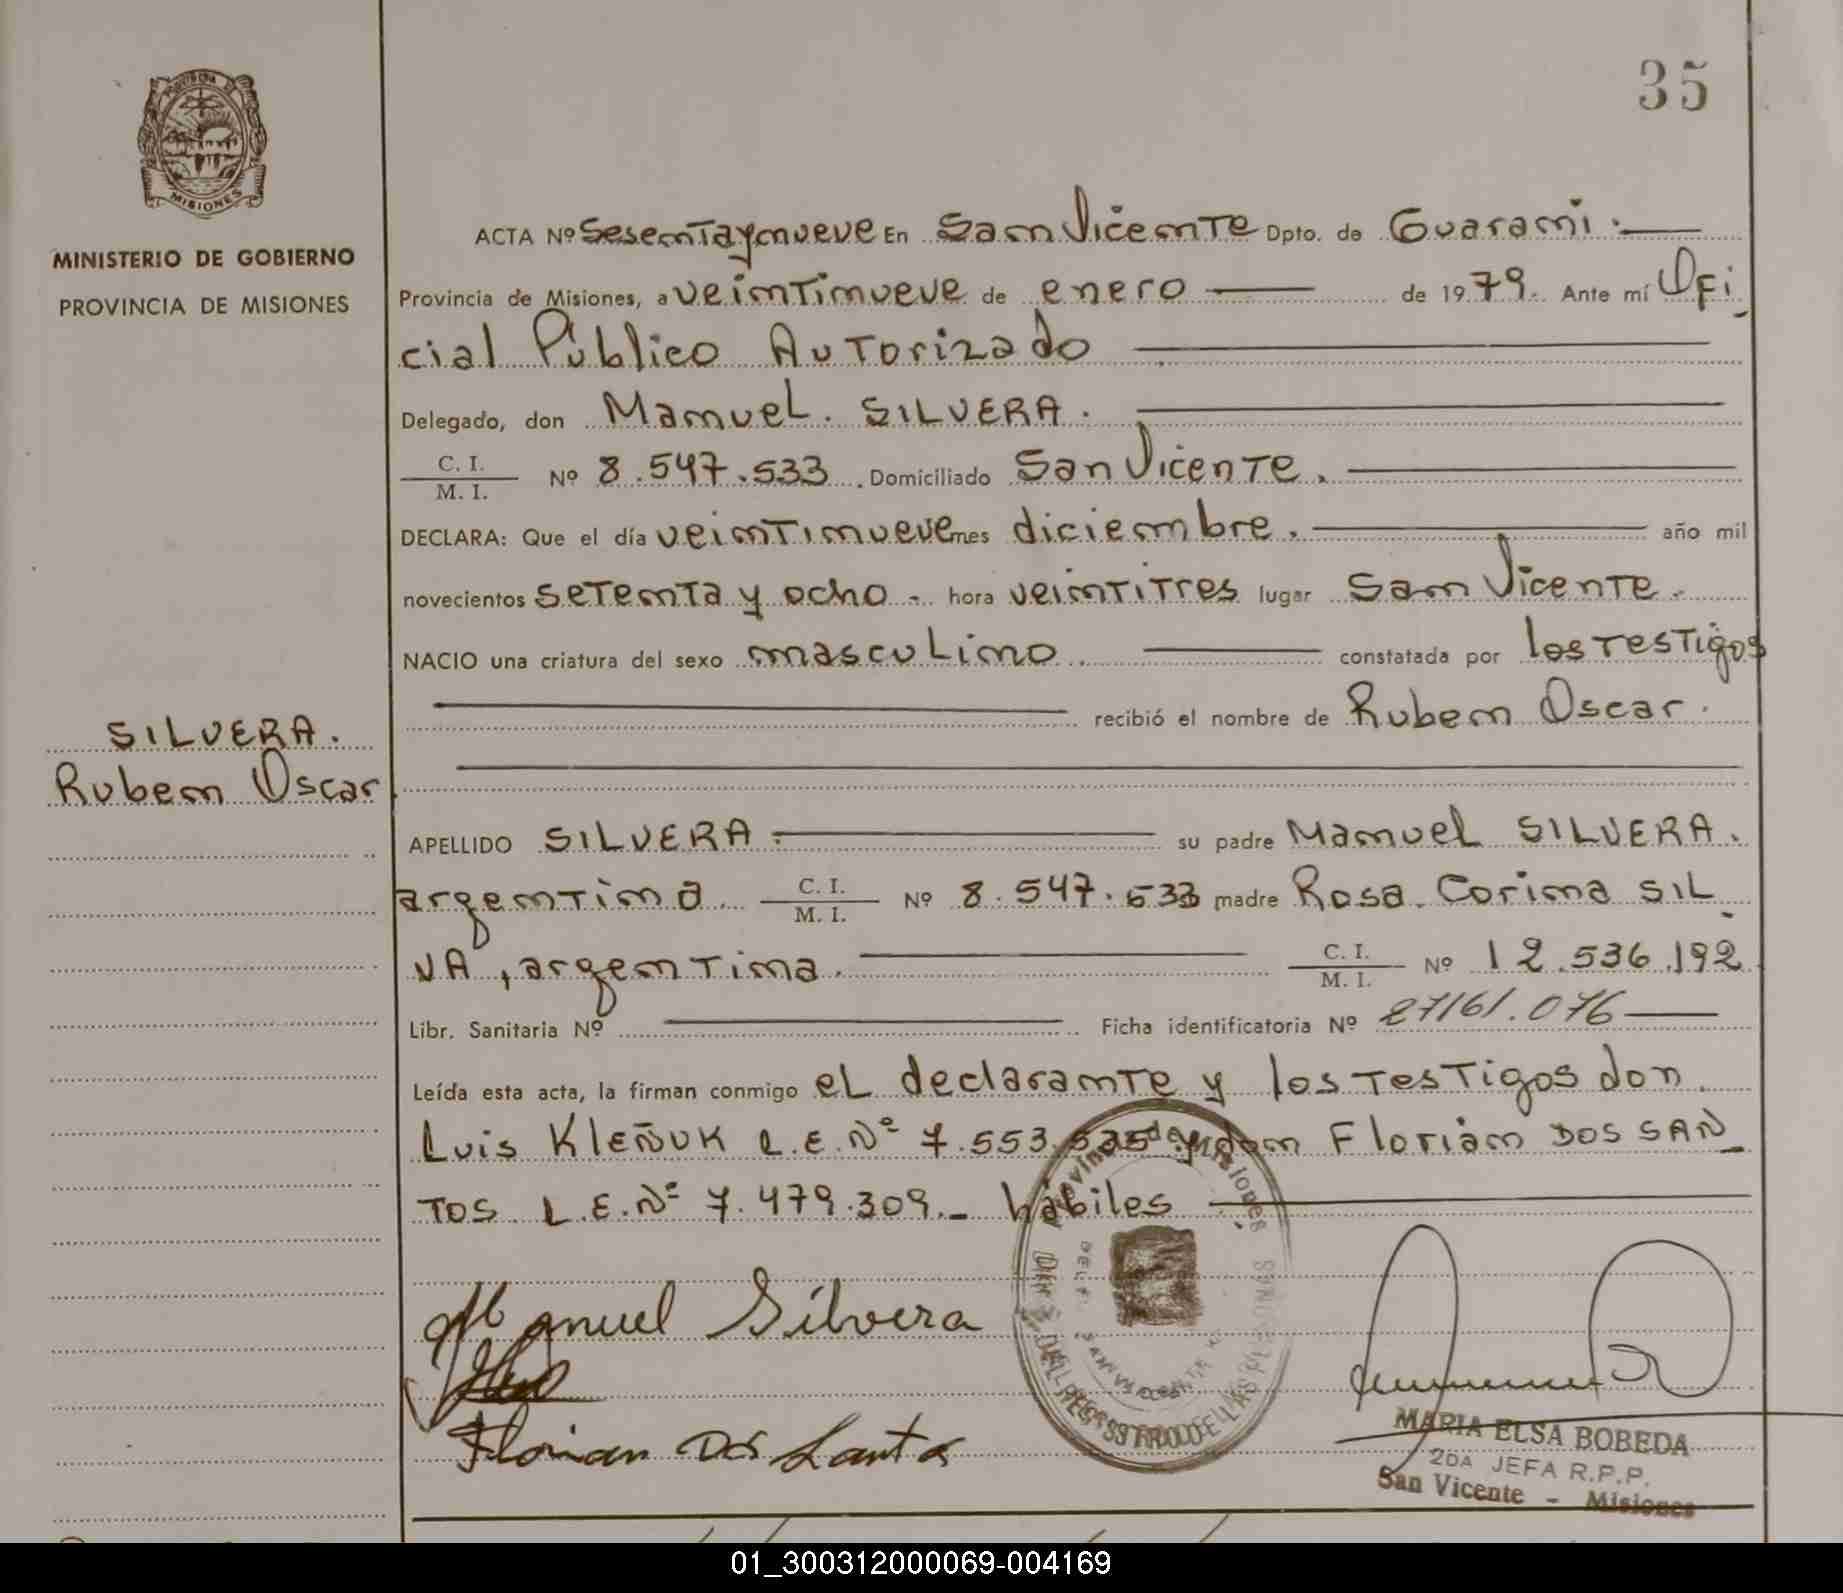 35
PROVINCIA DE
MISIONES
MINISTERIO DE GOBIERNO
PROVINCIA DE MISIONES
ACTA Nº Sesenta y nueve En San Vicente Dpto. de Guarani.
Provincia de Misiones, a veintinueve de enero de 1979. Ante mí Ofi
cial Público Autorizado
Delegado, don Manuel. SILVERA.
C. I.
M. I.
Nº 8.547.533. Domiciliado San Vicente.
DECLARA: Que el día veintinueve mes diciembre. año mil
novecientos setenta y ocho - hora veintitres lugar San Vicente.
NACIO una criatura del sexo masculino constatada por los testigos
recibió el nombre de Ruben Oscar.
SILVERA.
Ruben Oscar
APELLIDO SILVERA su padre Manuel SILVERA.
argentino C. I.
M. I.
Nº 8.547.533 madre Rosa Corina SIL
VA, argentina. C. I.
M. I.
Nº 12.536.192
Libr. Sanitaria Nº Ficha identificatoria Nº 27161.076
Leída esta acta, la firman conmigo el declarante y los testigos don
Luis KLEÑUK L.E.Nº 7.553.535 y don Florián DOS SAN
TOS L.E.Nº 7.479.309.- hábiles
Provincia de Misiones
Manuel Silvera
Florian Dos Santo
MARIA ELSA BOBEDA
2DA JEFA R.P.P.
San Vicente - Misiones
01_300312000069-004169